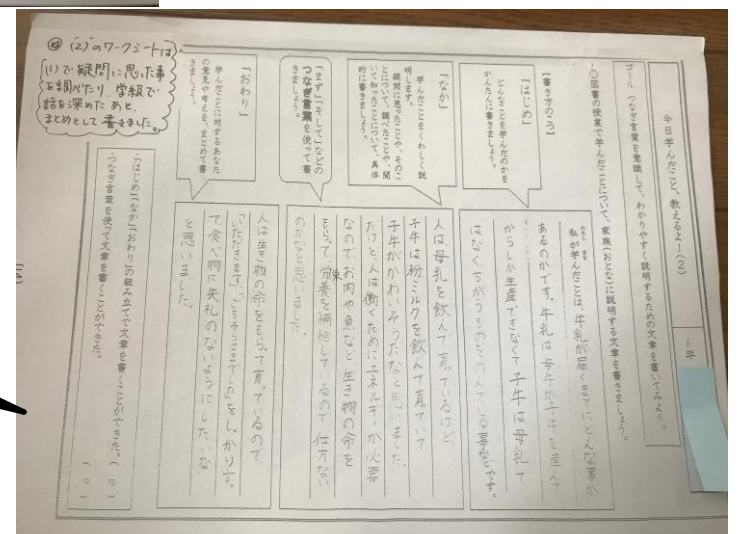 今日学んだこと、教えるよー(2)
年
ゴール つなぎ言葉を意識して、わかりやすく説明するための文章を書いてみよう。
○図書の授業で学んだことについて、家族(おとな)に説明する文章を書きましょう。
【書き方のこつ】
「はじめ」
どんなことを学んだのかを
かんたんに書きましょう。
私が学んだことは、牛乳が届くまでにどんな事が
あるのかです。牛乳は母牛が子牛を産んで
からしか生産できなくて、子牛は母乳で
はなくちがうものをのんでいる事などです。
「なか」
学んだことをくわしく説
明します。
疑問に思ったことや、そのこ
とについて、調べたことや、聞
いて知ったことについて、具体
的に書きましょう。
人は、母乳を飲んで育っているけど
子牛は粉ミルクを飲んで育っていて
子牛がかわいそうだなと思いました。
だけど、人は働くためにエネルギーが必要
なので、お肉や魚など、生き物の命を
もらって、栄養を補給しているので、仕方ない
のかなと思いました。
「まず」「そして」などの
つなぎ言葉を使って書
きましょう。
「おわり」
学んだことに対するあなた
の意見や考えを、まとめて書
きましょう。
人は生き物の命をもらって育っているので
「いただきます」「ごちそうさまでした」をしっかり言っ
て、食べ物に失礼のないようにしたいな
と思いました。
・「はじめ」「なか」「おわり」の組み立てで文章を書くことができた。(○)
・つなぎ言葉を使って文章を書くことができた。(○)
(2)のワークシートは
(1)で疑問に思った事
を調べたり、学級で
話を深めたあと、
まとめとして書きました。